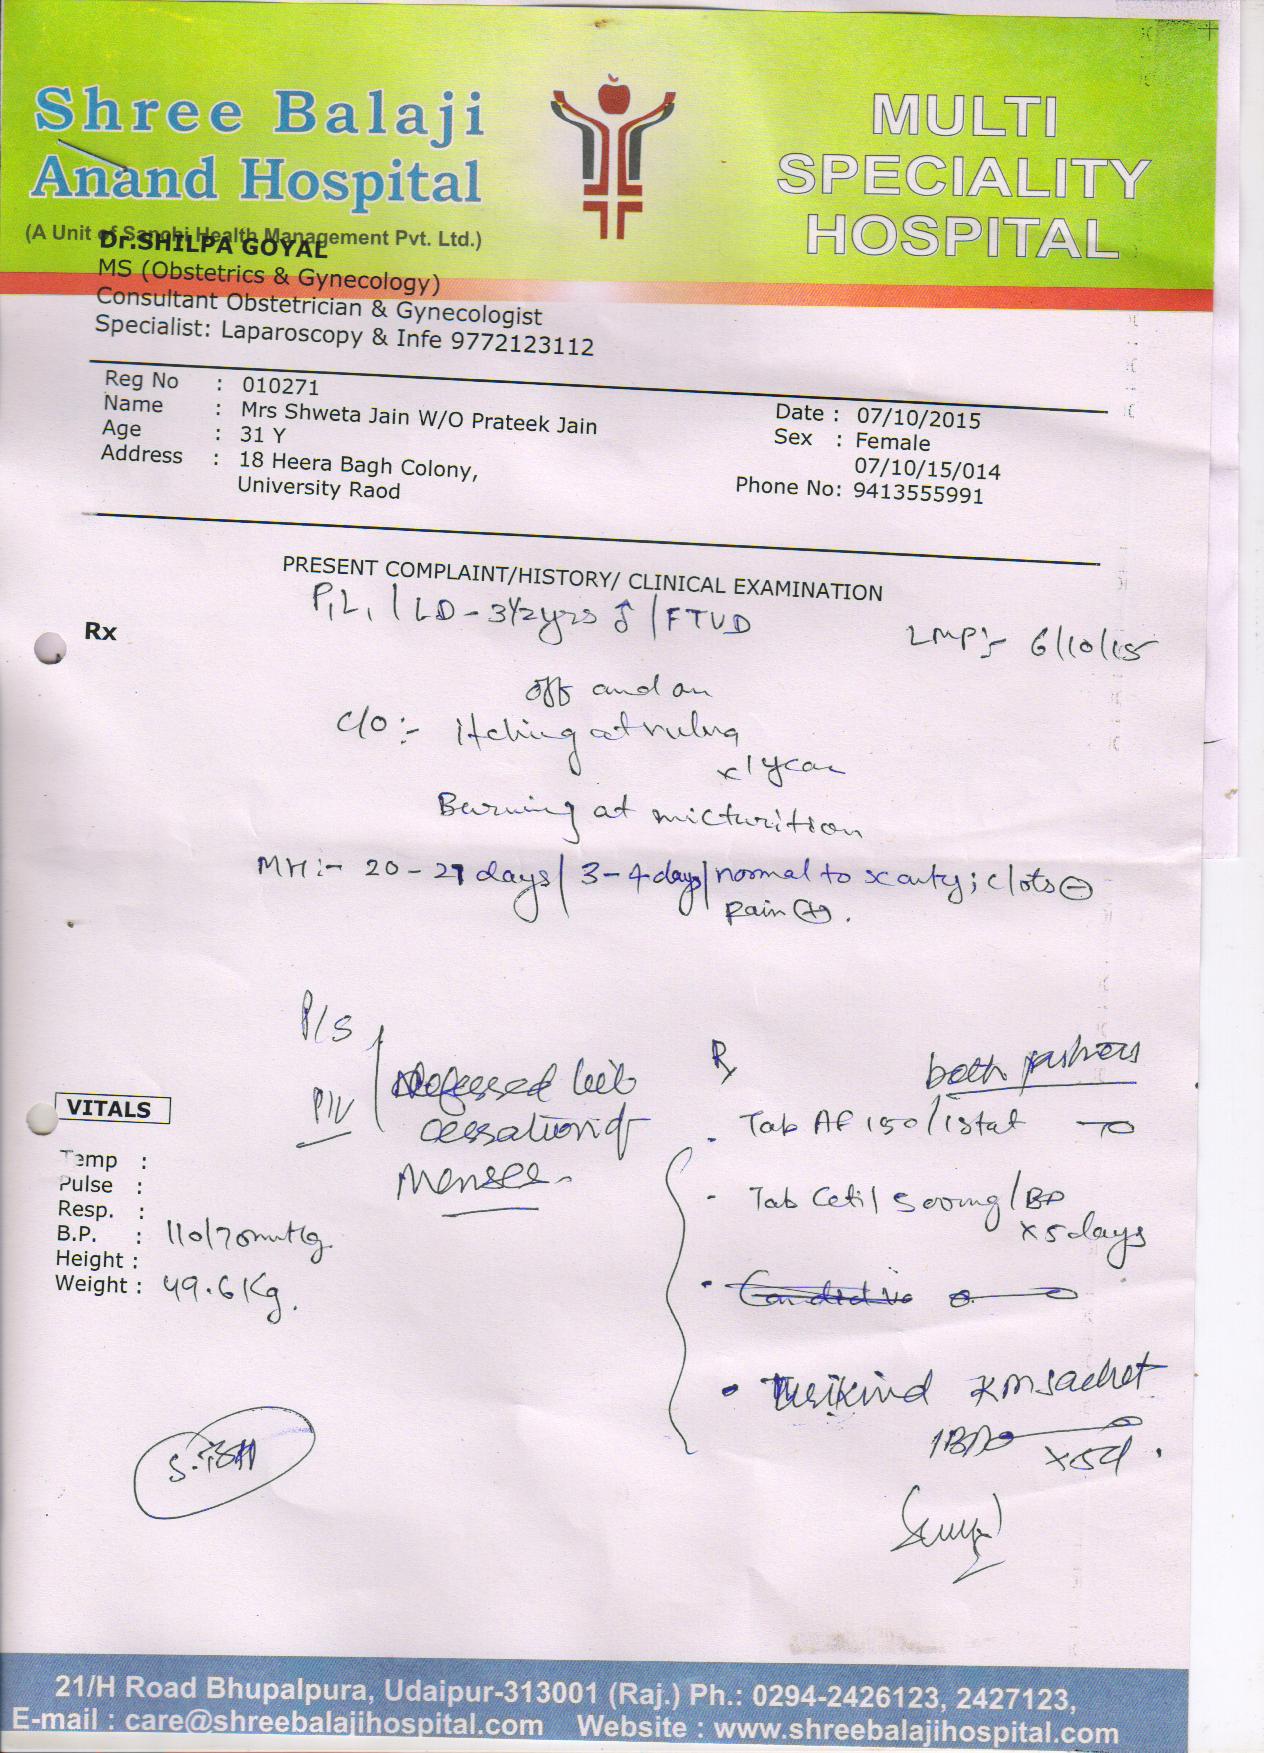 Shree Balaji
Anand Hospital
(A Unit of Sanchi Health Management Pvt. Ltd.)
MULTI
SPECIALITY
HOSPITAL
Dr.SHILPA GOYAL
MS (Obstetrics & Gynecology)
Consultant Obstetrician & Gynecologist
Specialist: Laparoscopy & Infe 9772123112
Reg No : 010271
Name : Mrs Shweta Jain W/O Prateek Jain
Age : 31 Y
Address : 18 Heera Bagh Colony,
University Raod
Date : 07/10/2015
Sex : Female
07/10/15/014
Phone No: 9413555991
PRESENT COMPLAINT/HISTORY/ CLINICAL EXAMINATION
P1L1 / LD - 3½yrs ♂ / FTVD
Rx
LMP:- 6/10/15
off and on
C/O:- Itching at vulva
x 1 year
Burning at micturition
MH:- 20-27 days / 3-4 days / normal to scanty; clots ⊖
pain ⊕.
P/S
P/V
cessation of
Menses.
Rx
both partners
Tab AF 150 / 1 stat
Tab Cetil 500mg / BD
x 5 days
sachet
x5d.
VITALS
Temp :
Pulse :
Resp. :
B.P. : 110/70mmHg
Height :
Weight : 49.6Kg.
21/H Road Bhupalpura, Udaipur-313001 (Raj.) Ph.: 0294-2426123, 2427123,
E-mail : care@shreebalajihospital.com Website : www.shreebalajihospital.com